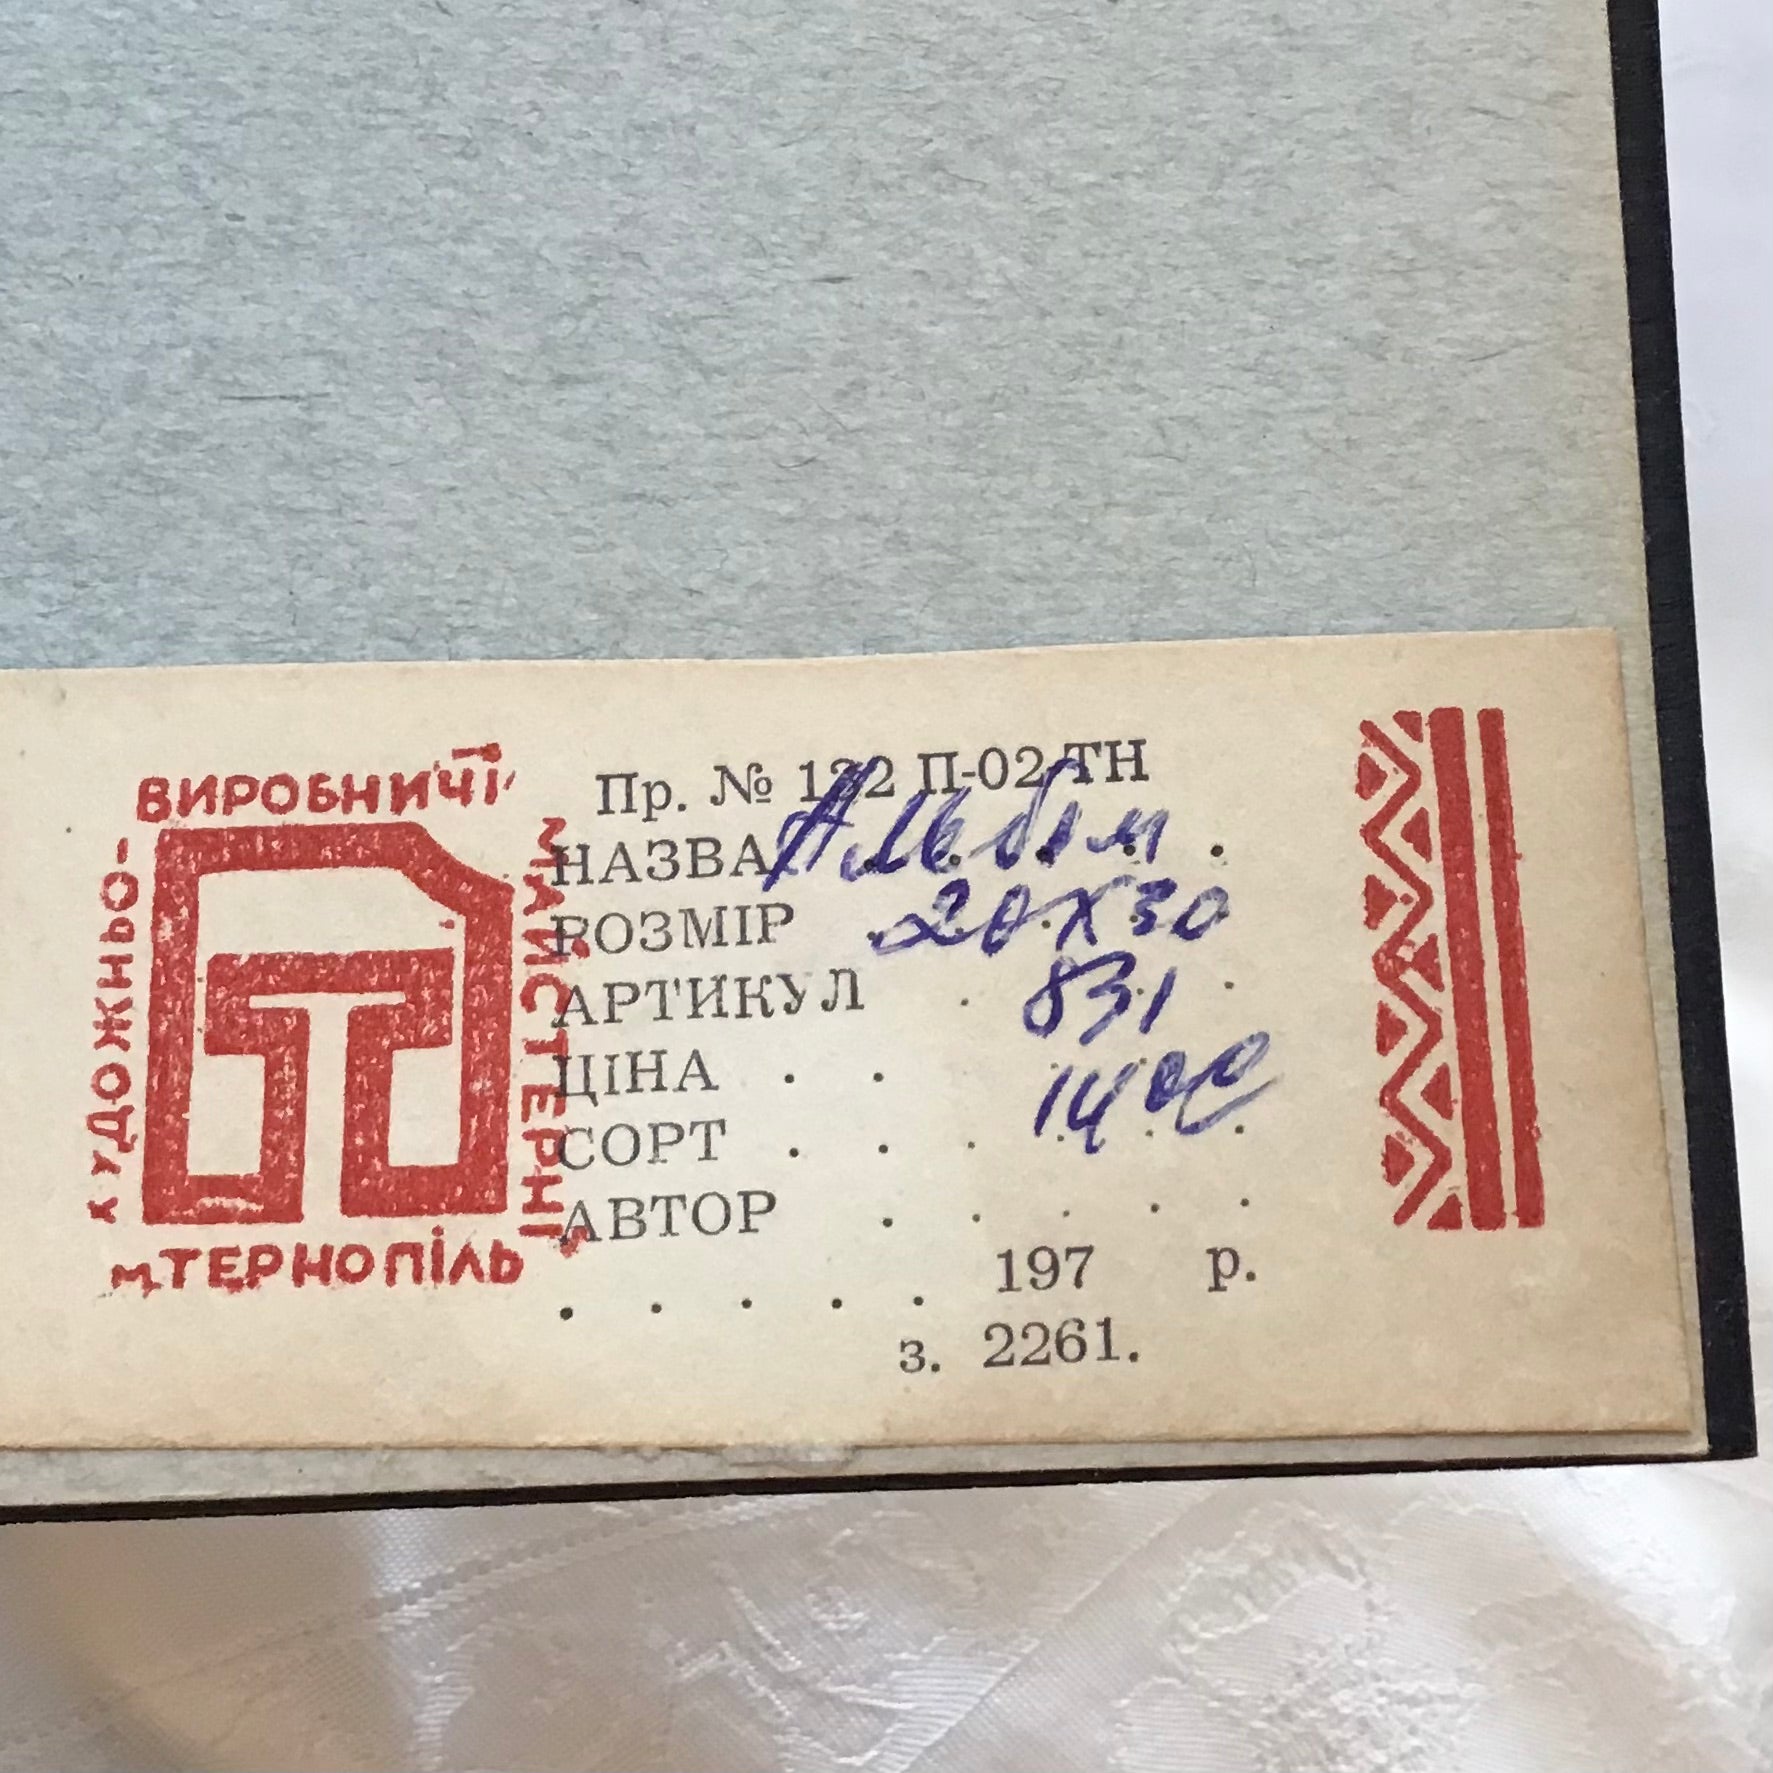 ХУДОЖНЬО-
ВИРОБНИЧІ
МАЙСТЕРНІ
м.ТЕРНОПІЛЬ
Пр. № 122 П-02 ТН
НАЗВА Альбом
РОЗМІР 20X30
АРТИКУЛ 831
ЦІНА 14 00
СОРТ
АВТОР
197 р.
з. 2261.